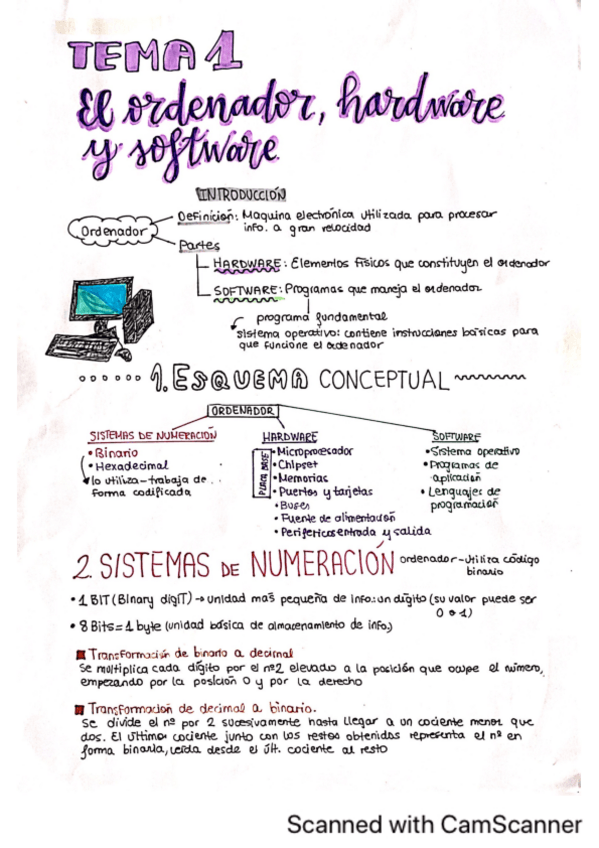 TEMA 1
El ordenador, hardware
y software.
INTRODUCCIÓN
Ordenador
Definición: Maquina electrónica utilizada para procesar
info. a gran velocidad
Partes
HARDWARE: Elementos físicos que constituyen el ordenador
SOFTWARE: Programas que maneja el ordenador
programa fundamental
sistema operativo: contiene instrucciones básicas para
que funcione el ordenador
1. ESQUEMA CONCEPTUAL
ORDENADOR
SISTEMAS DE NUMERACIÓN
• Binario
• Hexadecimal
lo utiliza-trabaja de
forma codificada
HARDWARE
PLACA BASE
• Microprocesador
• Chipset
• Memorias
• Puertos y tarjetas
• Buses
• Fuente de alimentación
• Perifericos entrada y salida
SOFTWARE
• Sistema operativo
• Programas de
aplicación
• Lenguajes de
programación
2. SISTEMAS DE NUMERACIÓN
ordenador-utiliza código
binario
• 1 BIT (BInary digIT) → unidad más pequeña de info: un dígito (su valor puede ser
0 o 1)
• 8 Bits = 1 byte (unidad básica de almacenamiento de info.)
Transformación de binario a decimal
Se multiplica cada dígito por el nº2 elevado a la posición que ocupe el número,
empezando por la posición 0 y por la derecho
Transformación de decimal a binario.
Se divide el nº por 2 sucesivamente hasta llegar a un cociente menor que
dos. El último cociente junto con los restos obtenidos representa el nº en
forma binaria, leída desde el últ. cociente al resto
Scanned with CamScanner